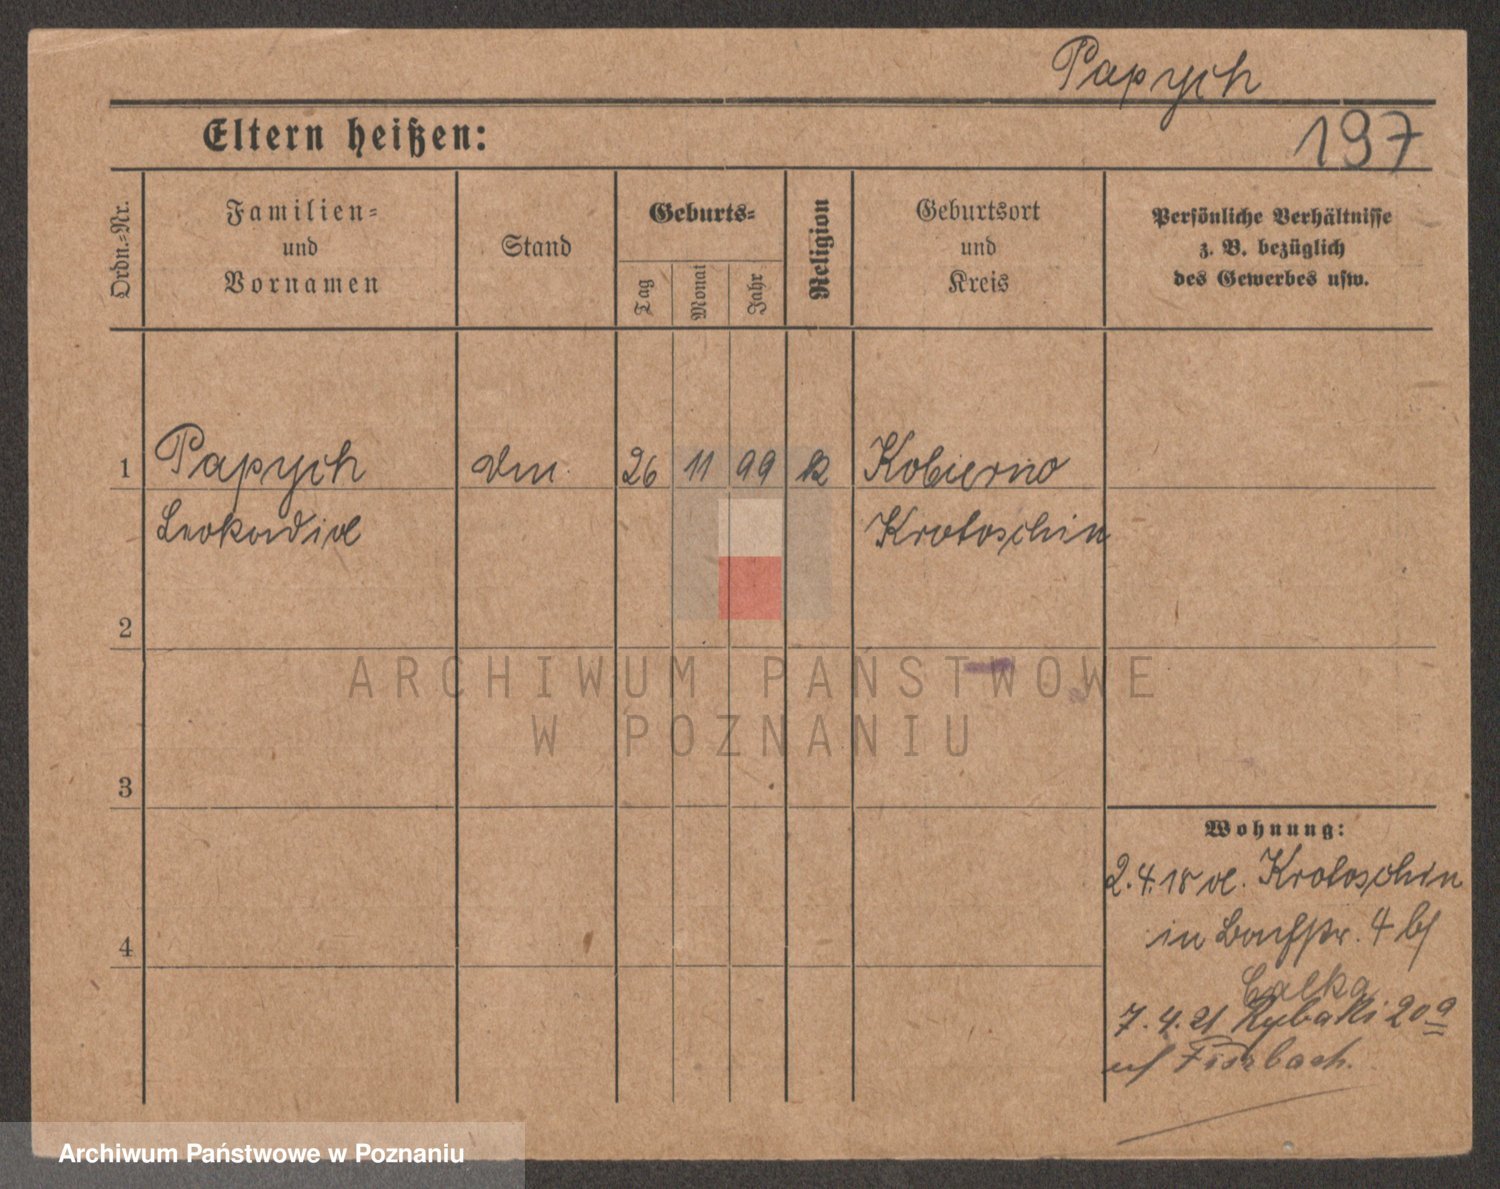 Papych
Eltern heißen:
197
Ordn.=Nr.
Familien=
und
Vornamen
Stand
Geburts=
Tag
Monat
Jahr
Religion
Geburtsort
und
Kreis
Persönliche Verhältnisse
z. B. bezüglich
des Gewerbes usw.
1
Papych
26
11
99
Kobierno
Leokadia
Krotoschin
2
ARCHIWUM PAŃSTWOWE
W POZNANIU
3
Wohnung:
2.4.18 Krotoschin
4
in 4 b/
Calka
7.4.21 Rybaki 20a
Archiwum Państwowe w Poznaniu